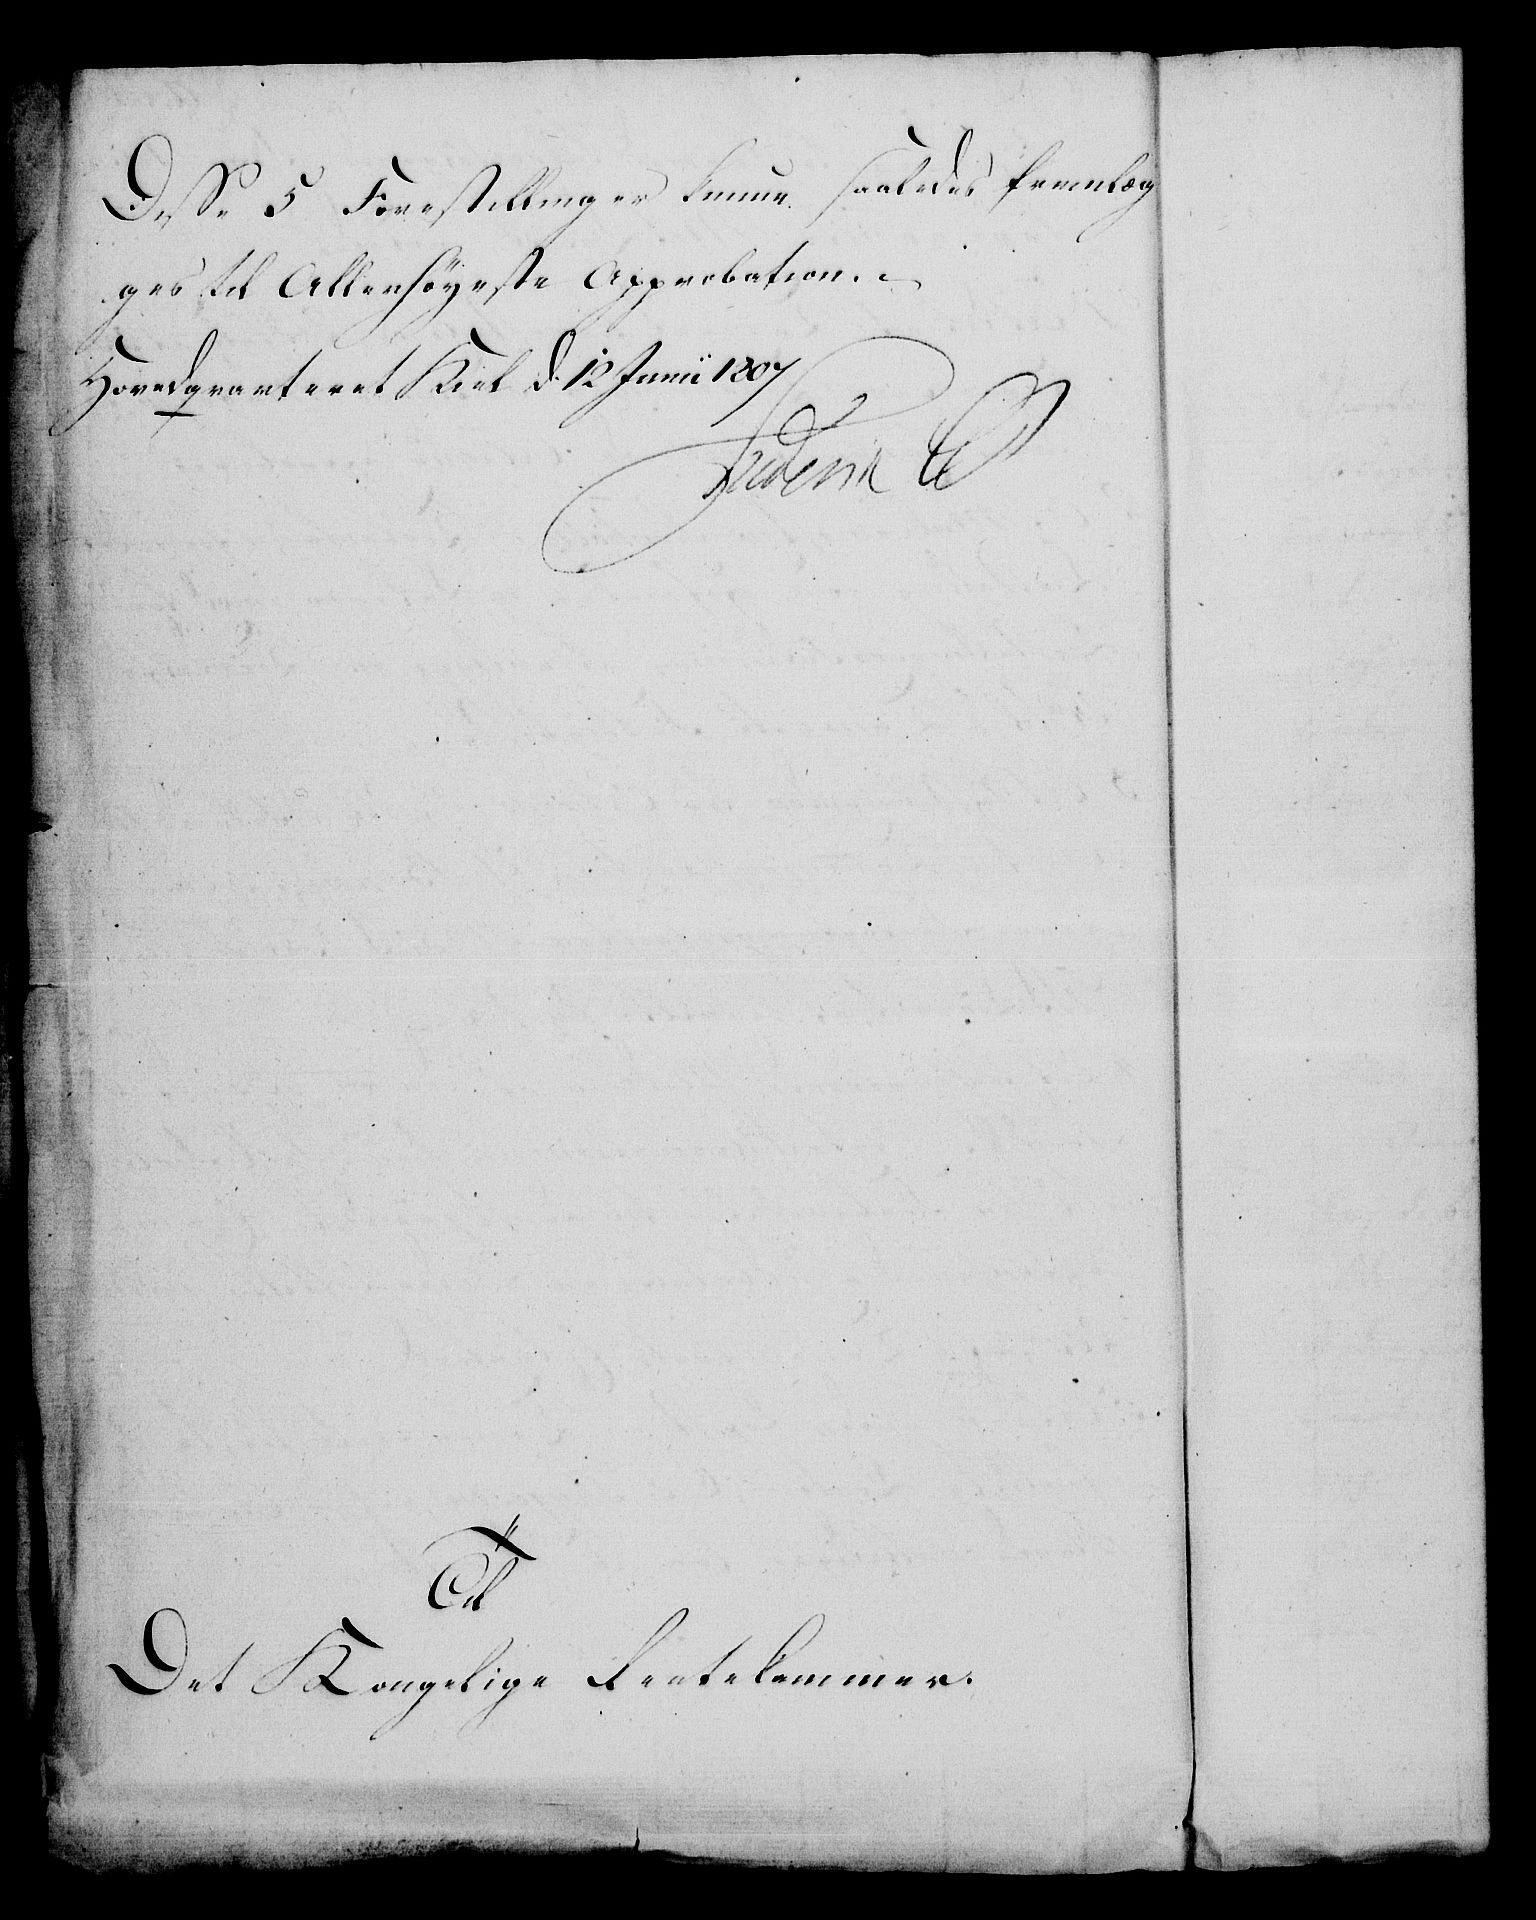 Disse 5 Forestillinger kunne saaledes fremlæg
ges til Allerhöyeste Approbation.
Hovedqvarteret Kiel d: 12 Junii 1807
Frederik
Til
Det Kongelige Rentekammer.